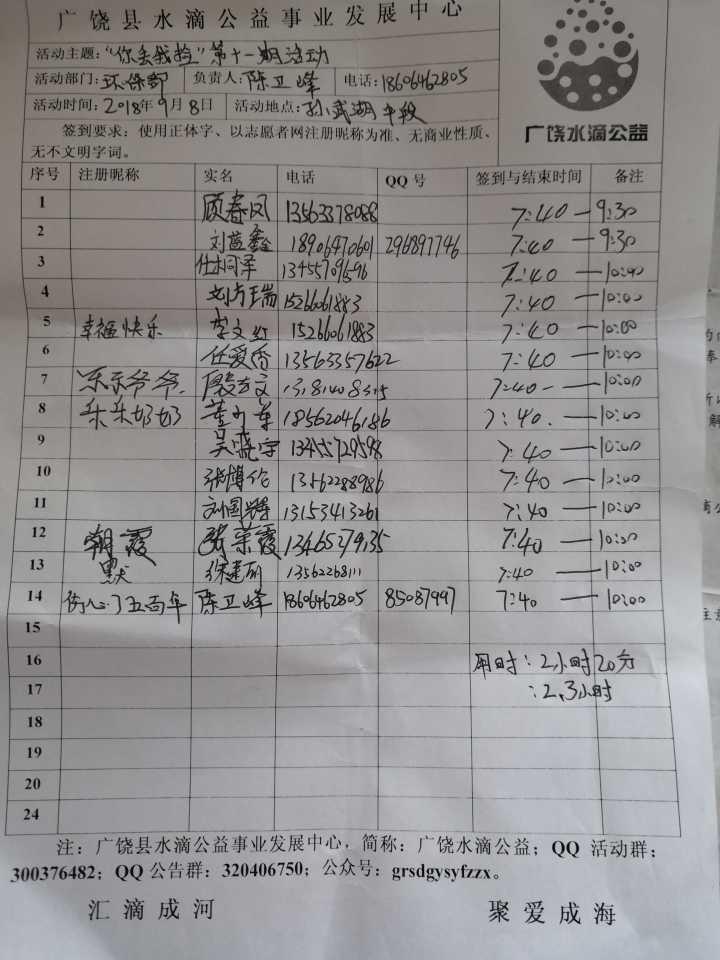 广饶县水滴公益事业发展中心
活动主题：“你丢我捡”第十一期活动
活动部门：环保部 负责人：陈卫峰 电话：18606462805
活动时间：2018年9月8日 活动地点：孙武湖中段
广饶水滴公益
签到要求：使用正体字、以志愿者网注册昵称为准、无商业性质、
无不文明字词。
序号 注册昵称 实名 电话 QQ号 签到与结束时间 备注
1 顾春凤 13563378088 7:40—9:30
2 刘蓝鑫 18906470601 296897746 7:40—9:30
3 仕桐泽 13455709696 7:40—10:00
4 15266061883 7:40—10:00
5 幸福快乐 李文 15266061883 7:40—10:00
6 任爱香 13563357622 7:40—10:00
7 乐乐爷爷 13181408315 7:40—10:00
8 乐乐奶奶 18562046186 7:40.—10:00
9 吴晓宇 13455729598 7:40—10:00
10 张博伦 13562288986 7:40—10:00
11 刘国辉 13153413261 7:40—10:00
12 朝霞 张荣霞 13465279135 7:40—10:00
13 默 徐建丽 13562268111 7:40—10:00
14 伤心了五百年 陈卫峰 18606462805 85087997 7:40—10:00
15
16 用时：2小时20分
17 ：2.3小时
18
19
20
24
注：广饶县水滴公益事业发展中心，简称：广饶水滴公益；QQ 活动群：
300376482；QQ 公告群：320406750；公众号：grsdgysyfzzx。
汇滴成河 聚爱成海